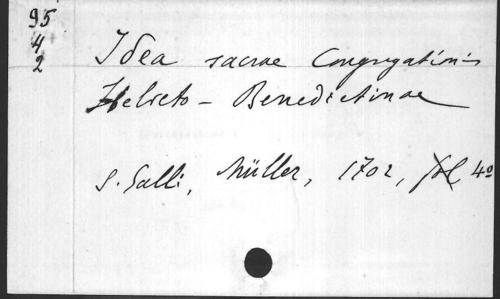 95
4
2
Idea sacrae Congregationis
Helveto - Benedictinae
S. Galli, Müller, 1702, 4º